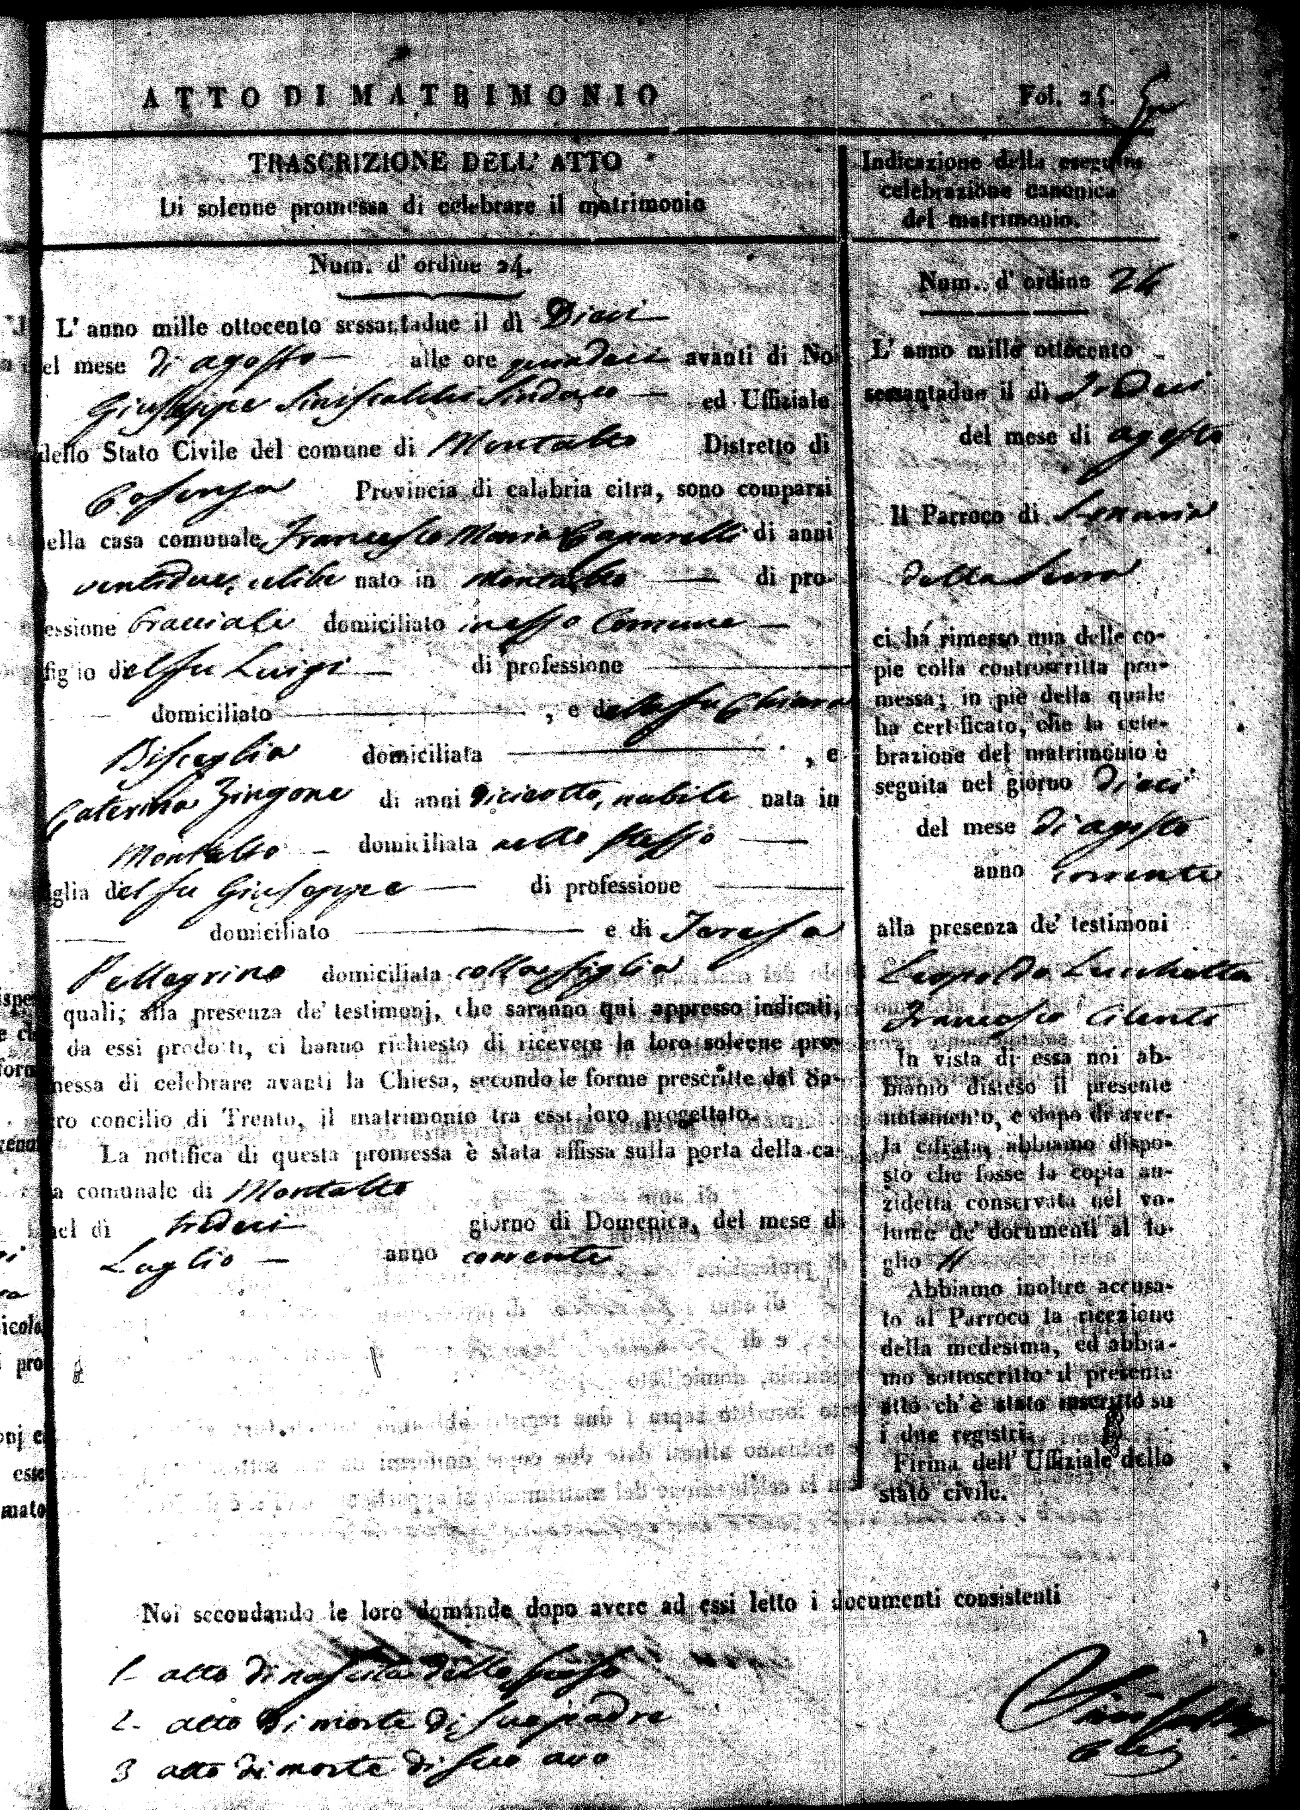 ATTO DI MATRIMONIO
Fol. 25.
TRASCRIZIONE DELL' ATTO
Di solenne promessa di celebrare il matrimonio
Num. d' ordine 24.
L' anno mille ottocento sessantadue il dì Dieci
del mese di agosto alle ore quindeci avanti di Noi
Giuseppe Siniscalchi Sindaco ed Uffiziale
dello Stato Civile del comune di Montalto Distretto di
Cosenza Provincia di calabria citra, sono comparsi
nella casa comunale Francesco Maria Caparelli di anni
ventidue, celibe nato in Montalto di pro-
fessione bracciale domiciliato in esso Comune
figlio del fu Luigi di professione
domiciliato , e della fu Chiara
Bisceglia domiciliata , e
Caterina Zingone di anni diciotto, nubile nata in
Montalto domiciliata nello stesso
figlia del fu Giuseppe di professione
domiciliato e di Teresa
Pellegrino domiciliata colla figlia
quali; alla presenza de' testimonj, che saranno qui appresso indicati,
da essi prodotti, ci hanno richiesto di ricevere la loro solenne pro-
messa di celebrare avanti la Chiesa, secondo le forme prescritte dal Sa-
cro concilio di Trento, il matrimonio tra essi loro progettato.
La notifica di questa promessa è stata affissa sulla porta della ca-
sa comunale di Montalto
nel di tredeci giorno di Domenica, del mese di
Luglio anno corrente
Noi secondando le loro domande dopo avere ad essi letto i documenti consistenti
1- atto di nascita dello sposo
2- atto di morte di suo padre
3 atto di morte di suo avo
Indicazione della eseguita
celebrazione canonica
del matrimonio.
Num. d' ordine 24
L' anno mille ottocento
sessantadue il dì tredeci
del mese di agosto
Il Parroco di S. Maria
della Serra
ci há rimesso una delle co-
pie colla controscritta pro-
messa; in piè della quale
ha certificato, che la cele-
brazione del matrimonio è
seguita nel giorno dieci
del mese di agosto
anno corrente
alla presenza de' testimoni
Leopoldo Lucchetta
Francesco Cilenti
In vista di essa noi ab-
biamo disteso il presente
notamento, e dopo di aver-
la cifrata, abbiamo dispo-
sto che fosse la copia an-
zidetta conservata nel vo-
lume de' documenti al fo-
glio 11
Abbiamo inoltre accusa-
to al Parroco la ricezione
della medesima, ed abbia-
mo sottoscritto il presente
atto ch' è stato inscritto su
i due registri.
Firma dell' Uffiziale dello
stato civile.